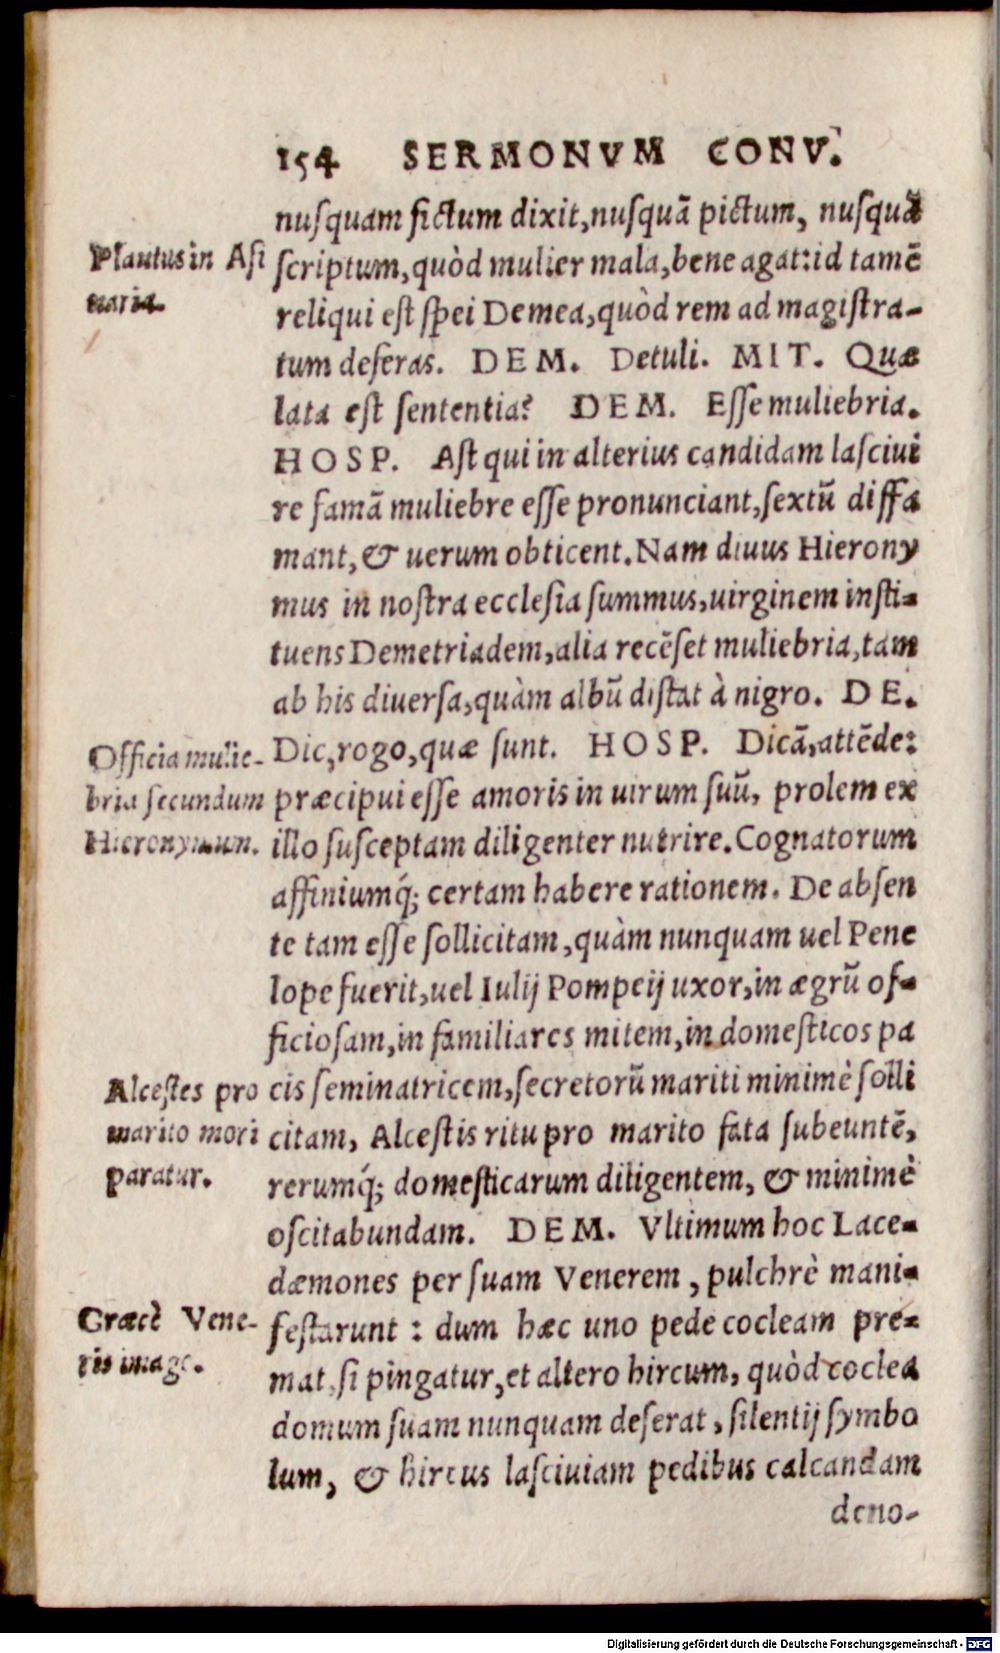 154 SERMONVM CONV.
nuſquam fictum dixit, nuſquã pictum, nuſquã
Plautus in Aſi
naria.
ſcriptum, quòd mulier mala, bene agat: id tamẽ
reliqui eſt ſpei Demea, quòd rem ad magiſtra-
tum deferas. DEM. Detuli. MIT. Quæ
lata eſt ſententia? DEM. Eſſe muliebria.
HOSP. Aſt qui in alterius candidam laſciui
re famã muliebre eſſe pronunciant, ſextũ diffa
mant, & uerum obticent. Nam diuus Hierony
mus in noſtra eccleſia ſummus, uirginem inſti-
tuens Demetriadem, alia recẽſet muliebria, tam
ab his diuerſa, quàm albũ diſtat à nigro. DE.
Officia mulie-
bria ſecundum
Hieronymum.
Dic, rogo, quæ ſunt. HOSP. Dicã, attẽde:
præcipui eſſe amoris in uirum ſuũ, prolem ex
illo ſuſceptam diligenter nutrire. Cognatorum
affiniumq́; certam habere rationem. De abſen
te tam eſſe ſollicitam, quàm nunquam uel Pene
lope fuerit, uel Iulij Pompeij uxor, in ægrũ of-
ficioſam, in familiares mitem, in domeſticos pa
Alceſtes pro
marito mori
paratur.
cis ſeminatricem, ſecretorũ mariti minimè ſolli
citam, Alceſtis ritu pro marito fata ſubeuntẽ,
rerumq́; domeſticarum diligentem, & minimè
oſcitabundam. DEM. Vltimum hoc Lace-
dæmones per ſuam Venerem, pulchrè mani-
Græcè Vene-
ris imago.
feſtarunt: dum hæc uno pede cocleam pre-
mat, ſi pingatur, et altero hircum, quòd coclea
domum ſuam nunquam deſerat, ſilentij ſymbo
lum, & hircus laſciuiam pedibus calcandam
deno-
Digitalisierung gefördert durch die Deutsche Forschungsgemeinschaft - DFG